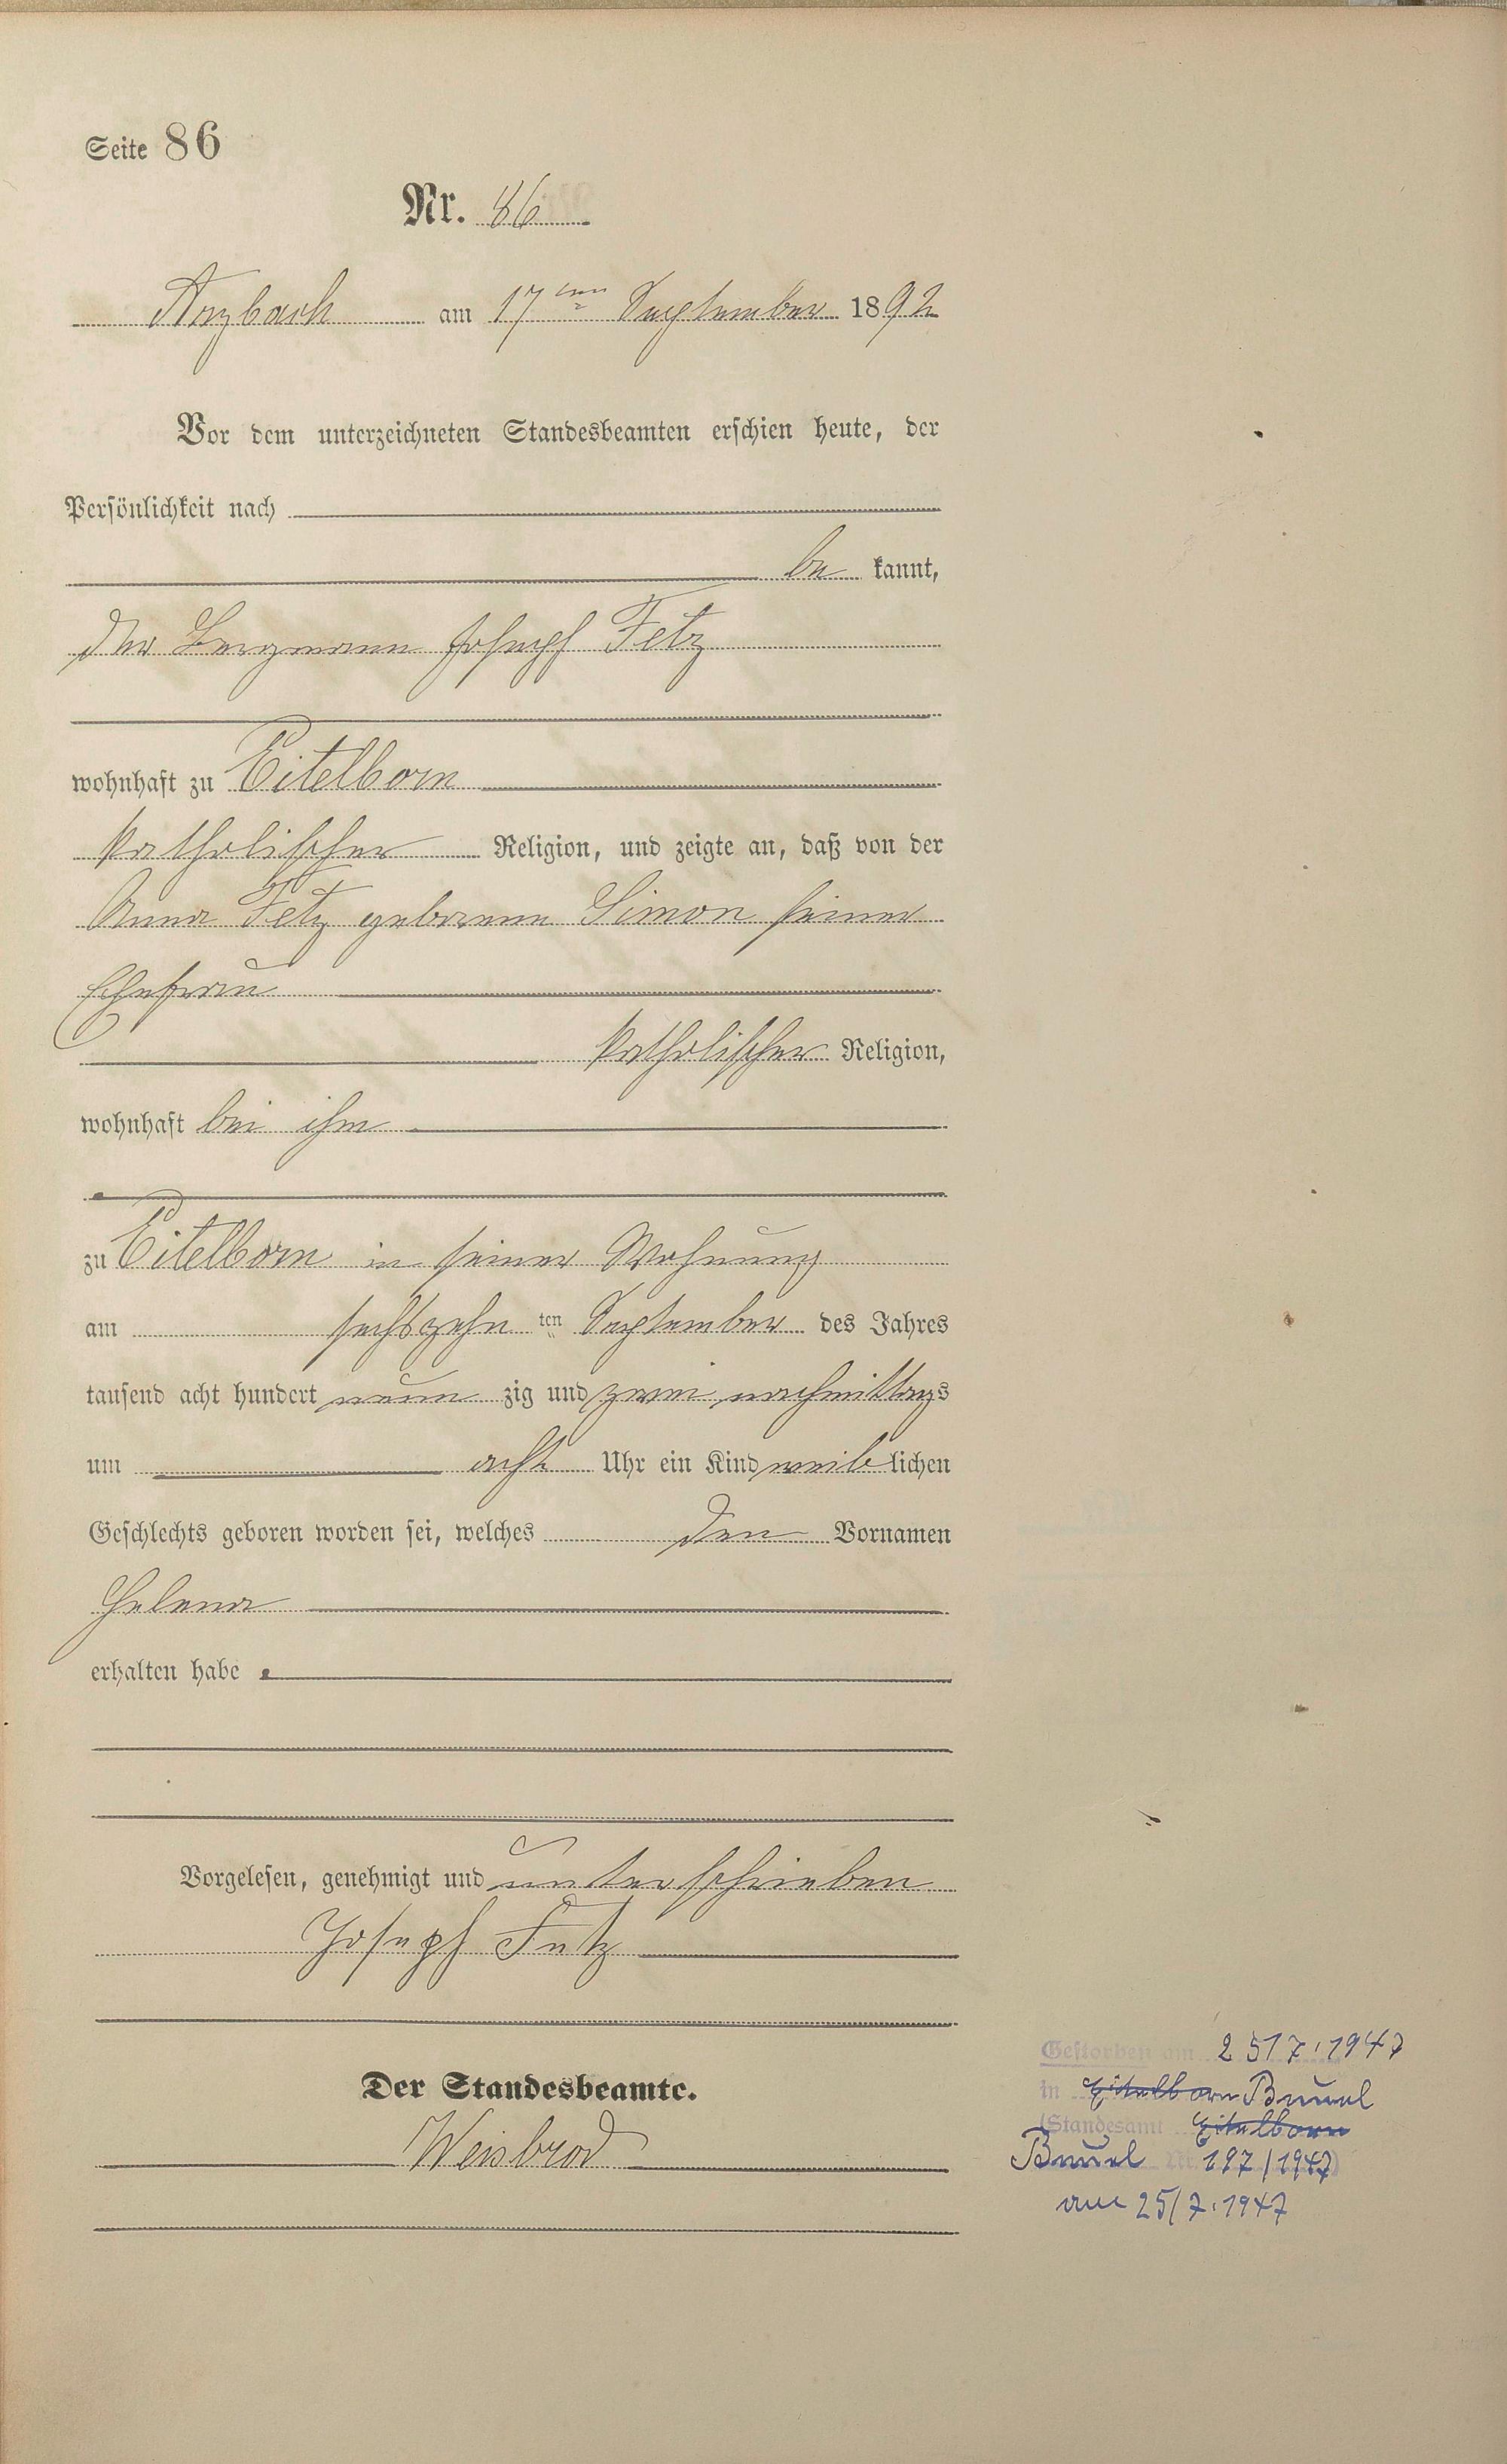 Seite 86
Nr. 86
Arzbach am 17ten September 1892
Vor dem unterzeichneten Standesbeamten erschien heute, der
Persönlichkeit nach
be kannt,
der Bergmann Joseph Fetz
wohnhaft zu Eitelborn
katholischer Religion, und zeigte an, daß von der
Anna Fetz geborene Simon seiner
Ehefrau
katholischer Religion,
wohnhaft bei ihm
zu Eitelborn in seiner Wohnung
am sechszehn ten September des Jahres
tausend acht hundert neun zig und zwei nachmittags
um acht Uhr ein Kind weiblichen
Geschlechts geboren worden sei, welches den Vornamen
Helena
erhalten habe
Vorgelesen, genehmigt und unterschrieben
Joseph Fetz
Der Standesbeamte.
Weisbrod
Gestorben am 25/7.1947
in Eitelborn Beuel
(Standesamt Eitelborn
Beuel Nr. 197/1947)
am 25/7.1947